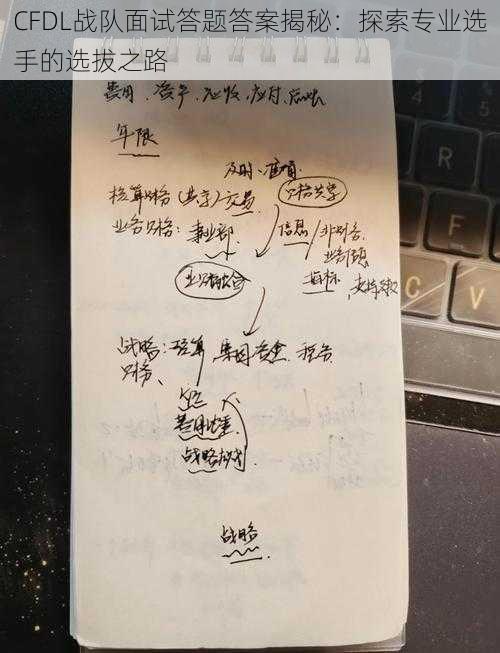 CFDL战队面试答题答案揭秘：探索专业选
手的选拔之路
费用、资产、应收、应付、总账
年限
及时、准确
核算财务（共享）交易 财务共享
业务财务：事业部 信息/非财务
业务预
业财融合 指标，支持决策
战略：预算 集团资金 税务
财务、
费用比重
战略
C V